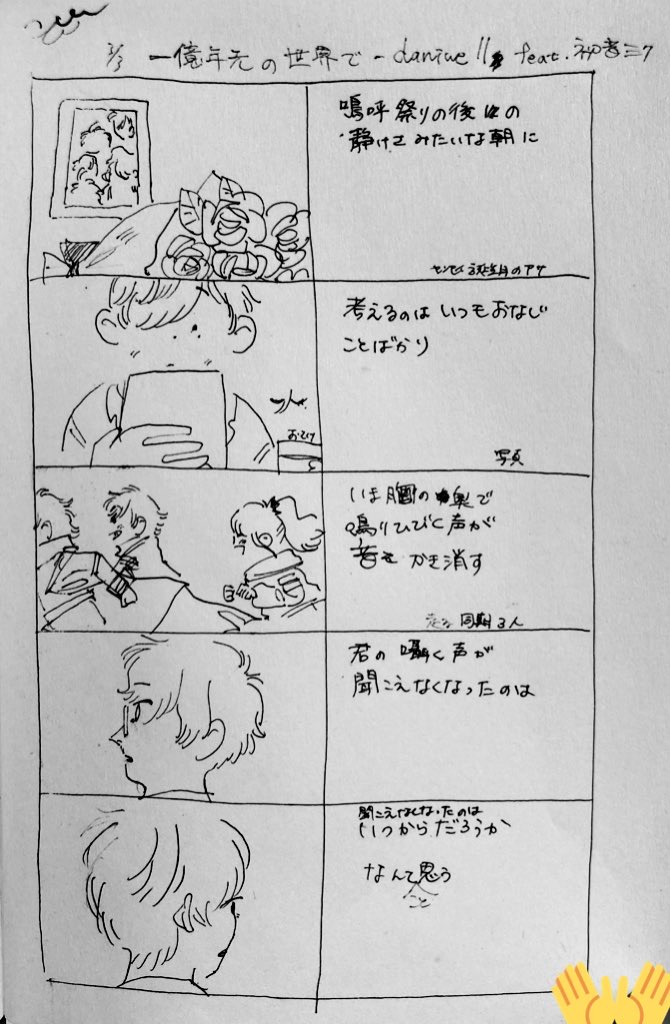 一億年先の世界で - daniwell feat. 初音ミク
嗚呼 祭りの後の
静けさ みたいな朝に
考えるのは いつもおなじ
ことばかり
写真
いま胸の奥で
鳴りひびく声が
音を かき消す
走る 同期3人
君の 囁く声が
聞こえなくなったのは
聞こえなくなったのは
いつからだろうか
なんて思う
こと